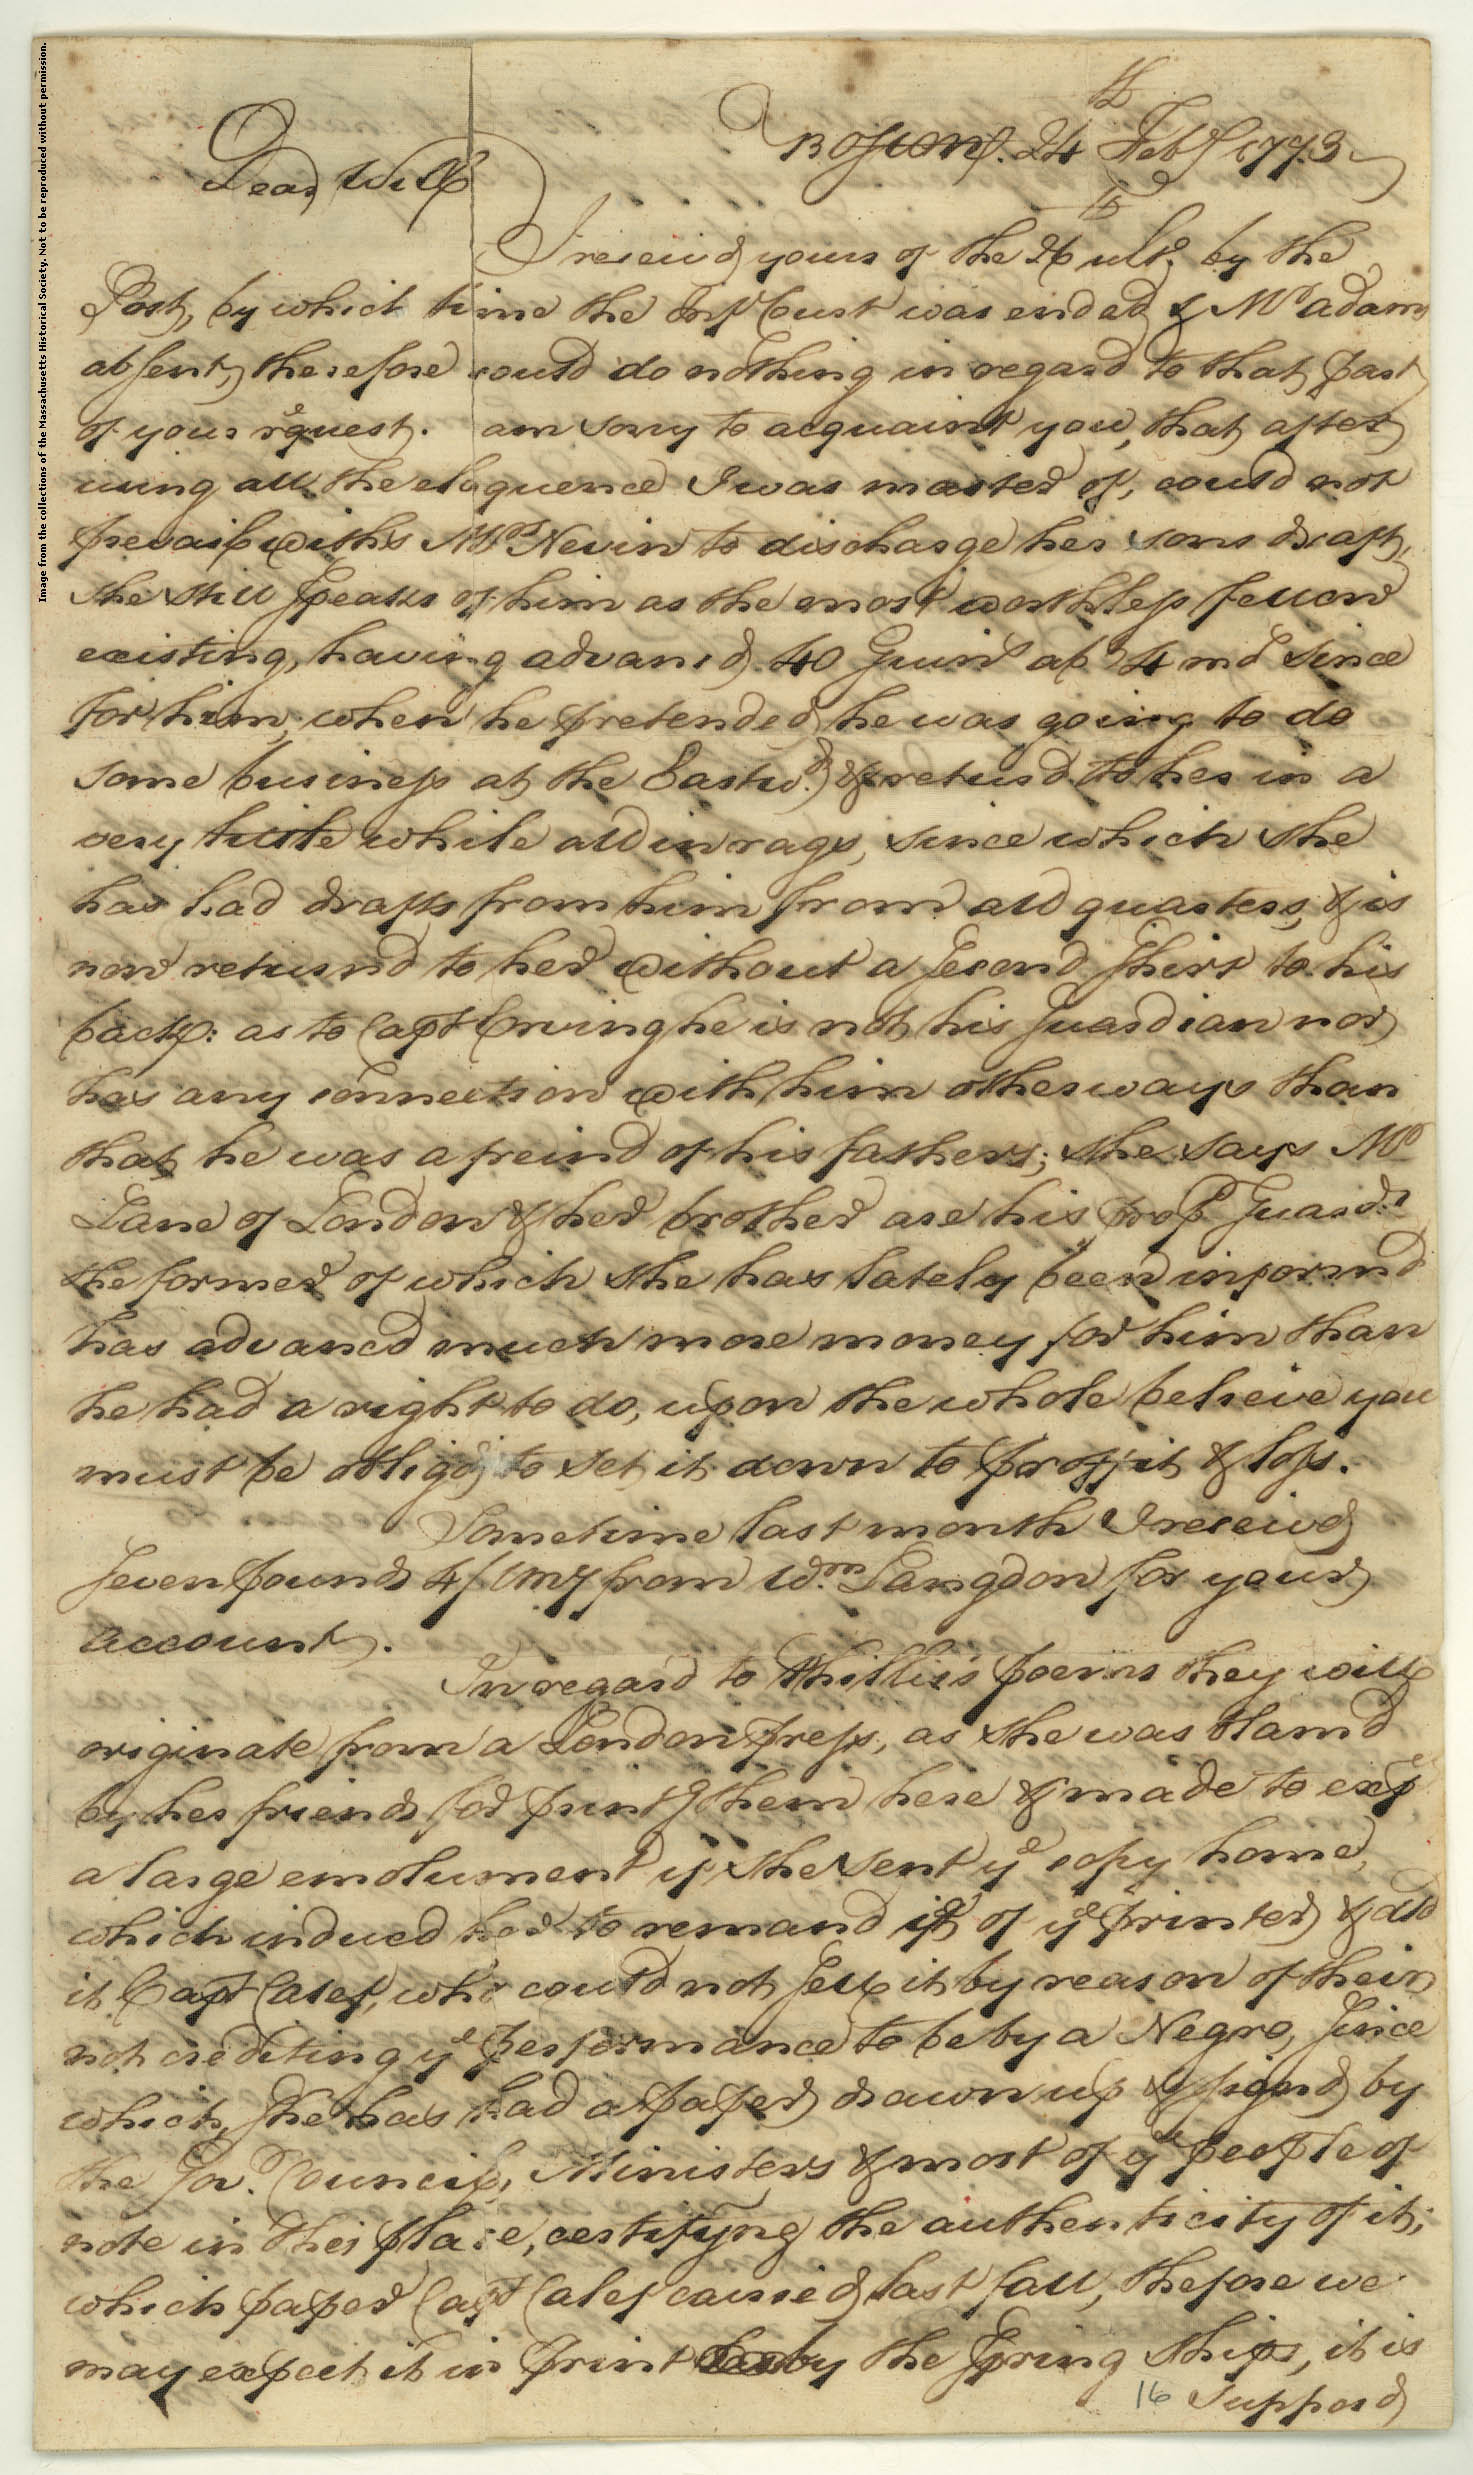 Image from the collections of the Massachusetts Historical Society. Not to be reproduced without permission.
Boston. 24th Feby 1773
Dear Will
I receivd yours of the 26th ulto. by the
Post, by which time the Infr Court was ended & Mr adams
absent, therefore could do nothing in regard to that part
of your request. am sorry to acquaint you, that after
using all the eloquence I was master of, could not
prevail with Mrs Nevin to discharge her sons draft,
she still speaks of him as the most worthless fellow
existing, having advancd 40 Guins abt 4 mo since
for him, when he pretended he was going to do
some business at the Eastwd. & returd to her in a
very little while all in rags, since which she
has had drafts from him from all quarters, & is
now returnd to her without a second shirt to his
back: as to Capt Erving he is not his Guardian nor
has any connection with him otherways than
that he was a freind of his fathers; she says Mr
Lane of London & her brother are his prop Guards
the former of which she has lately been informd
has advancd much more money for him than
he had a right to do, upon the whole believe you
must be obligd to set it down to proffit & loss.
Sometime last month I receivd
Seven pounds 4/ lmy from Wm. Langdon for your
account.
In regard to Phillis's poems they will
originate from a London press, as she was blamd
by her friends for printg them here & made to expt
a large emolument if she sent ye copy home,
which inducd her to remand it of ye printer & dld
it Capt Calef, who could not sell it by reason of their
not crediting ye performance to be by a Negro, since
which, she has had a paper drawn up & signd by
the Gov. Council, Ministers & most of ye people of
note in this place, certifyng the authenticity of it;
which paper Capt Calef carried last fall, thefore we
may expect it in print by the Spring ships, it is
16 supposd